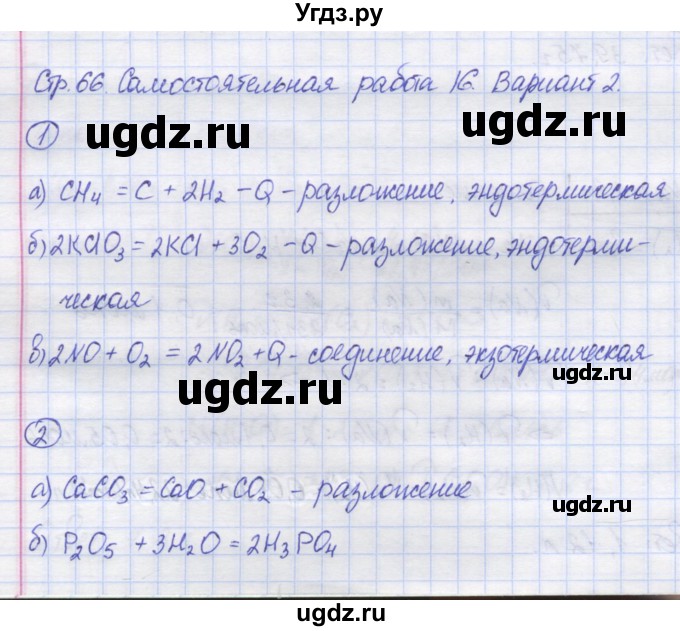 Угдз.ру
Стр. 66. Самостоятельная работа 16. Вариант 2.
1
ugdz.ru ugdz.ru
а) CH₄ = C + 2H₂ – Q – разложение, эндотермическая
б) 2KClO₃ = 2KCl + 3O₂ – Q – разложение, эндотерми-
ческая
в) 2NO + O₂ = 2NO₂ + Q – соединение, экзотермическая
ugdz.ru ugdz.ru ugdz.ru
2
а) CaCO₃ = CaO + CO₂ – разложение
ugdz.ru
б) P₂O₅ + 3H₂O = 2H₃PO₄
ugdz.ru ugdz.ru
ugdz.ru